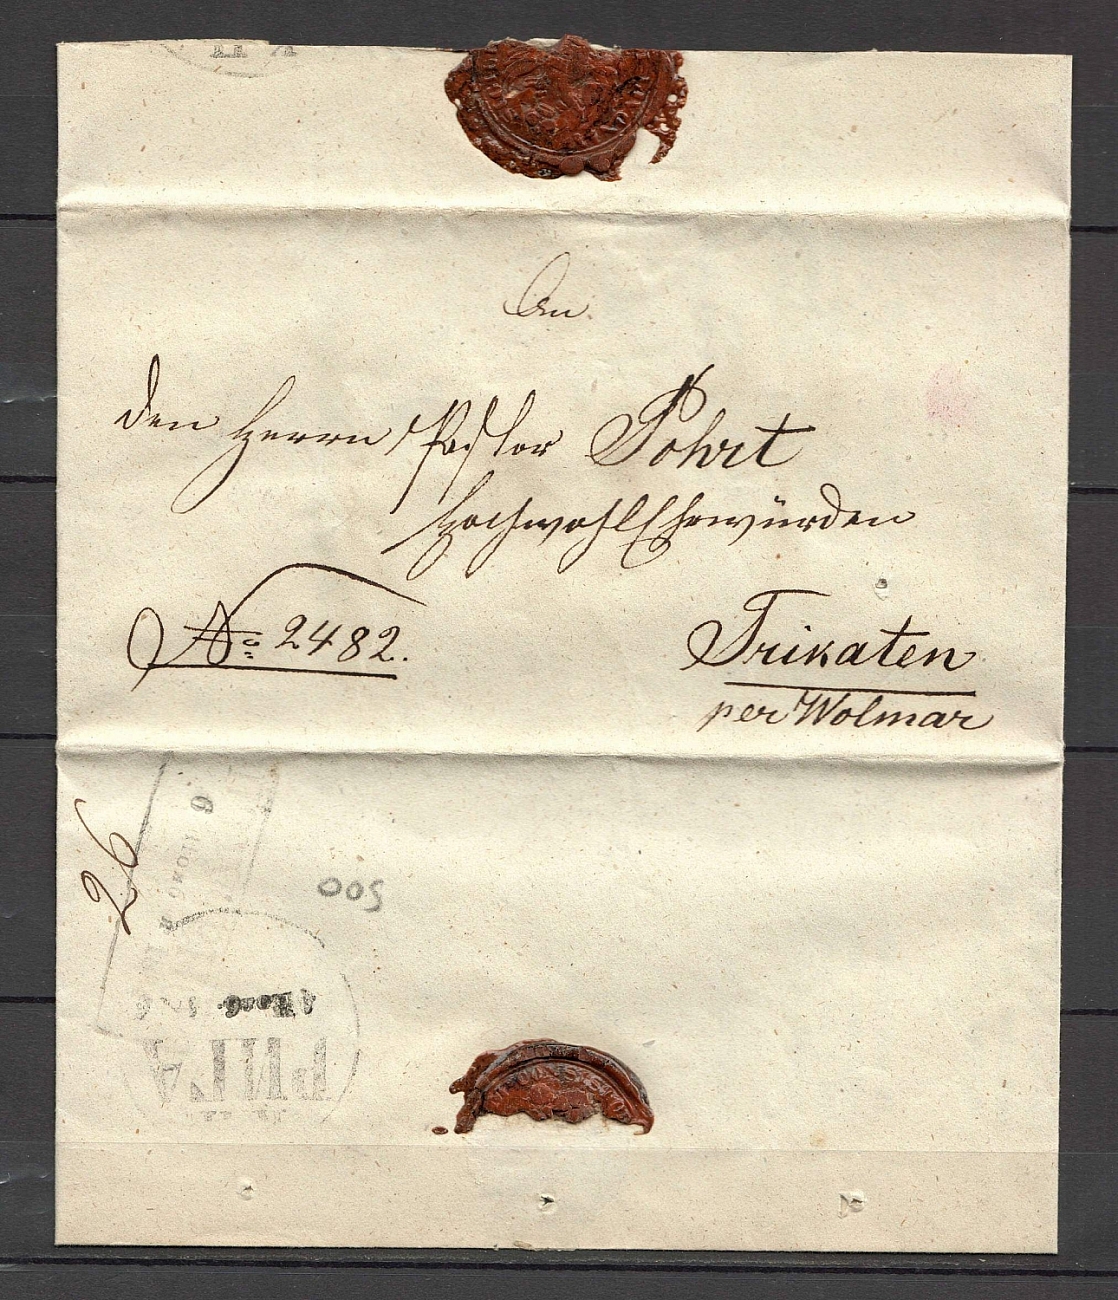 An
den Herrn Pastor Pohrt
HochwohlEhrwürden
No 2482.
Trikaten
per Wolmar
26
6
500
РИГА